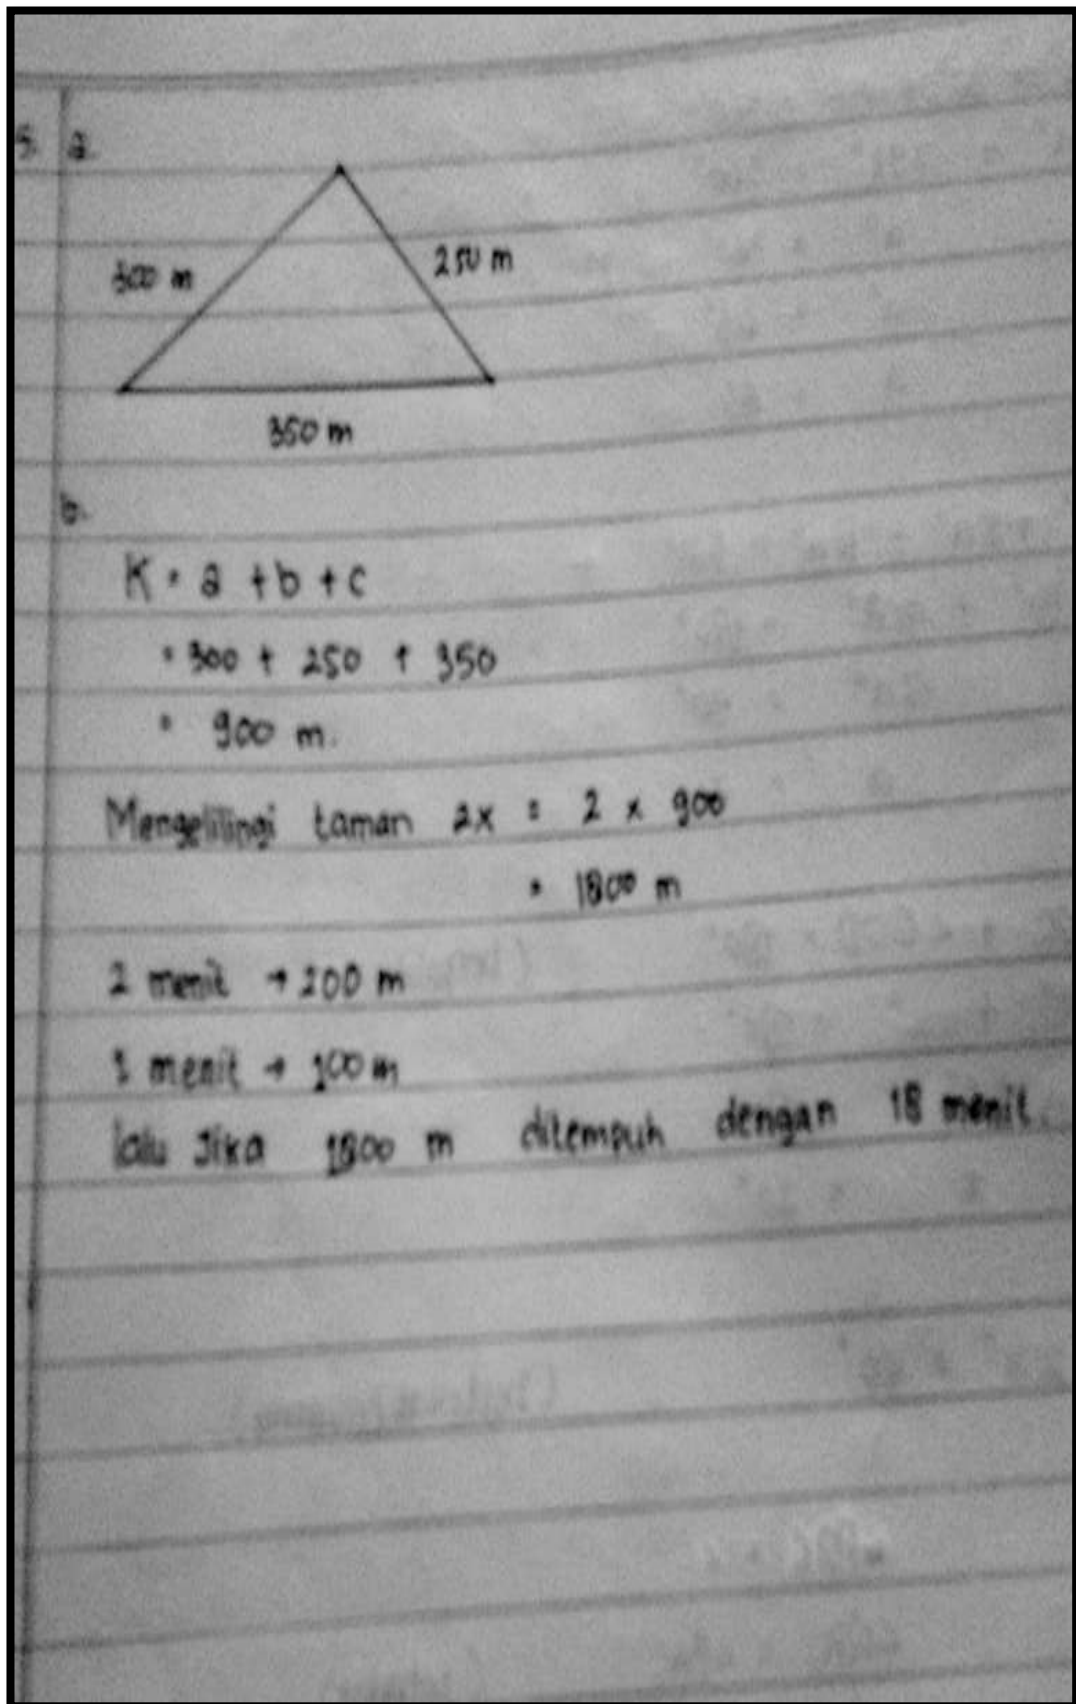 5. a.
300 m
250 m
350 m
b.
K = a + b + c
= 300 + 250 + 350
= 900 m.
Mengelilingi taman 2x = 2 x 900
= 1800 m
2 menit → 200 m
1 menit → 100 m
lalu Jika 1800 m ditempuh dengan 18 menit.